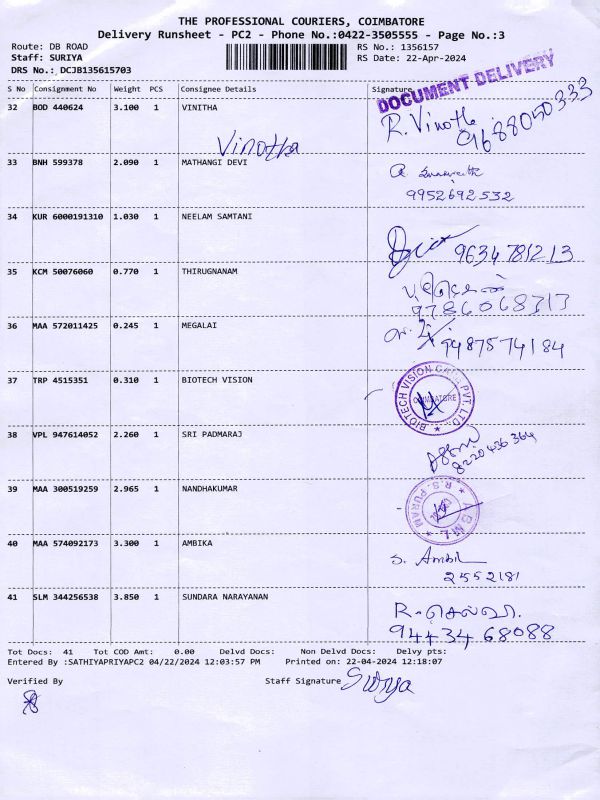 THE PROFESSIONAL COURIERS, COIMBATORE
Delivery Runsheet - PC2 - Phone No.:0422-3505555 - Page No.:3
Route: DB ROAD
RS No.: 1356157
Staff: SURIYA
RS Date: 22-Apr-2024
DRS No.: DCJB135615703
DOCUMENT DELIVERY
S No Consignment No Weight PCS Consignee Details Signature
32 BOD 440624 3.100 1 VINITHA
R. Vinotha
Vinotha
33 BNH 599378 2.090 1 MATHANGI DEVI
9952692532
34 KUR 6000191310 1.030 1 NEELAM SAMTANI
9634781213
35 KCM 50076060 0.770 1 THIRUGNANAM
9786068313
36 MAA 572011425 0.245 1 MEGALAI
9487574184
37 TRP 4515351 0.310 1 BIOTECH VISION
BIOTECH VISION CARE PVT. LTD.
COIMBATORE
38 VPL 947614052 2.260 1 SRI PADMARAJ
8220436364
39 MAA 300519259 2.965 1 NANDHAKUMAR
R.S. PURAM
40 MAA 574092173 3.300 1 AMBIKA
S. Ambik
2552181
41 SLM 344256538 3.850 1 SUNDARA NARAYANAN
R. செல்வி.
94434 68088
Tot Docs: 41 Tot COD Amt: 0.00 Delvd Docs: Non Delvd Docs: Delvy pts:
Entered By :SATHIYAPRIYAPC2 04/22/2024 12:03:57 PM Printed on: 22-04-2024 12:18:07
Verified By
Staff Signature Suriya